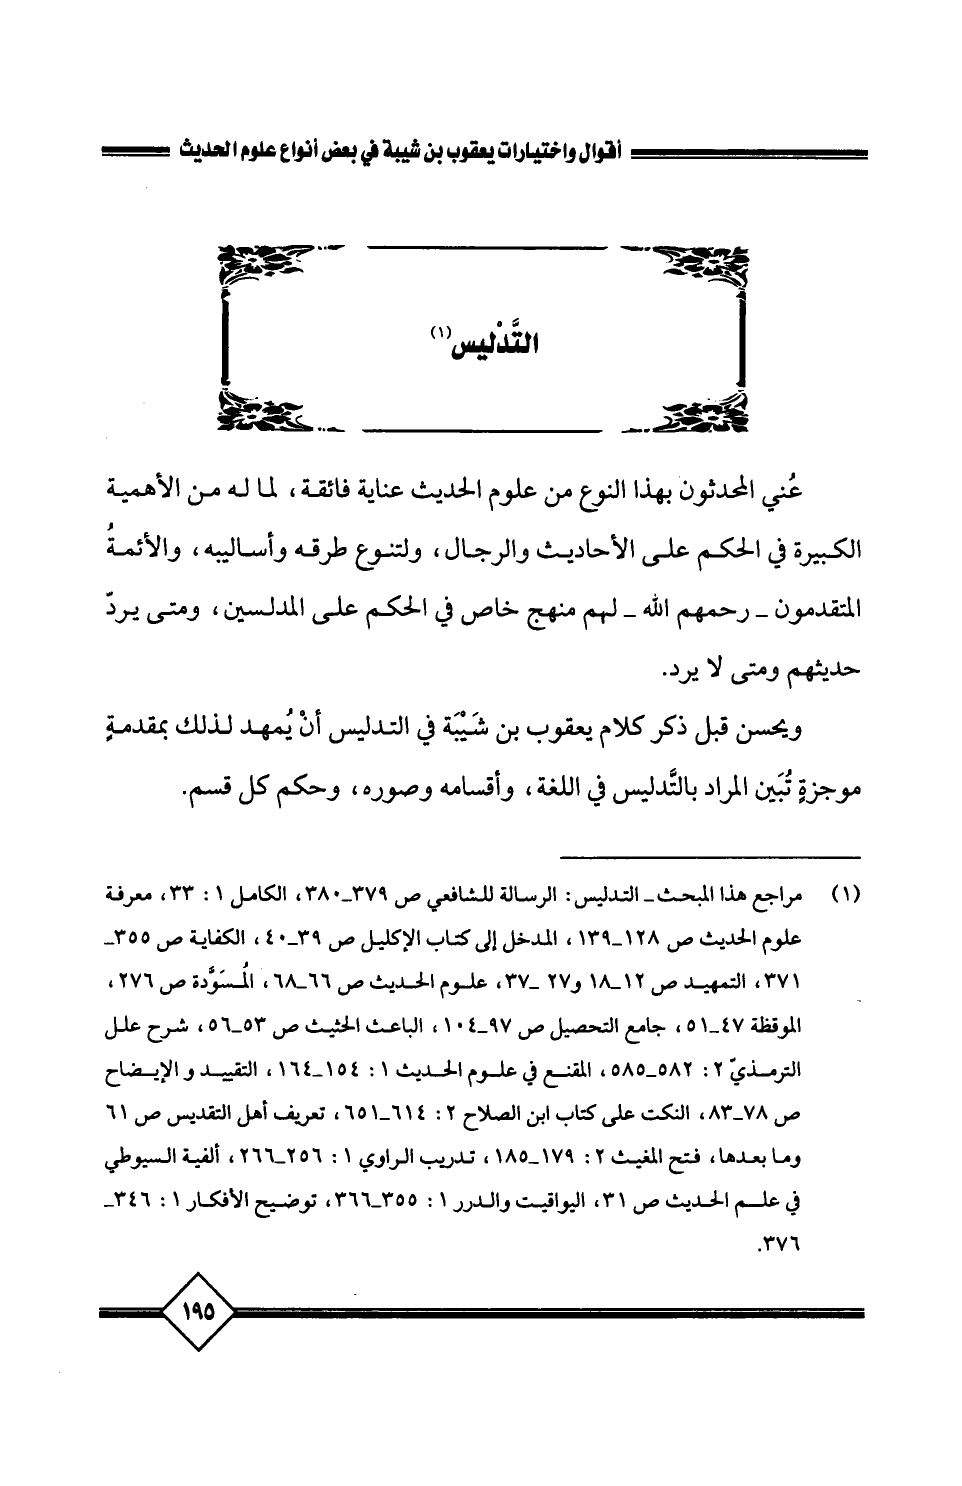 أقوال واختيارات يعقوب بن شيبة في بعض أنواع علوم الحديث
التَّدْليس (١)
عُني المحدثون بهذا النوع من علوم الحديث عناية فائقة، لما له من الأهمية
الكبيرة في الحكم على الأحاديث والرجال، ولتنوع طرقه وأساليبه، والأئمةُ
المتقدمون ـ رحمهم الله ـ لهم منهج خاص في الحكم على المدلسين، ومتى يردّ
حديثهم ومتى لا يرد.
ويحسن قبل ذكر كلام يعقوب بن شَيْبَة في التدليس أنْ يُمهد لذلك بمقدمةٍ
موجزةٍ تُبَين المراد بالتَّدليس في اللغة، وأقسامه وصوره، وحكم كل قسم.
(١) مراجع هذا المبحث ـ التدليس: الرسالة للشافعي ص ٣٧٩ـ٣٨٠، الكامل ١ : ٣٣، معرفة
علوم الحديث ص ١٢٨ـ١٣٩، المدخل إلى كتاب الإكليل ص ٣٩ـ٤٠، الكفاية ص ٣٥٥ـ
٣٧١، التمهيد ص ١٢ـ١٨ و٢٧ ـ٣٧، علوم الحديث ص ٦٦ـ٦٨، المُسَوَّدة ص ٢٧٦،
الموقظة ٤٧ـ٥١، جامع التحصيل ص ٩٧ـ١٠٤، الباعث الحثيث ص ٥٣ـ٥٦، شرح علل
الترمذيّ ٢ : ٥٨٢ـ٥٨٥، المقنع في علوم الحديث ١ : ١٥٤ـ١٦٤، التقييد و الإيضاح
ص ٧٨ـ٨٣، النكت على كتاب ابن الصلاح ٢ : ٦١٤ـ٦٥١، تعريف أهل التقديس ص ٦١
وما بعدها، فتح المغيث ٢ : ١٧٩ـ١٨٥، تدريب الراوي ١ : ٢٥٦ـ٢٦٦، ألفية السيوطي
في علم الحديث ص ٣١، اليواقيت والدرر ١ : ٣٥٥ـ٣٦٦، توضيح الأفكار ١ : ٣٤٦ـ
٣٧٦.
١٩٥